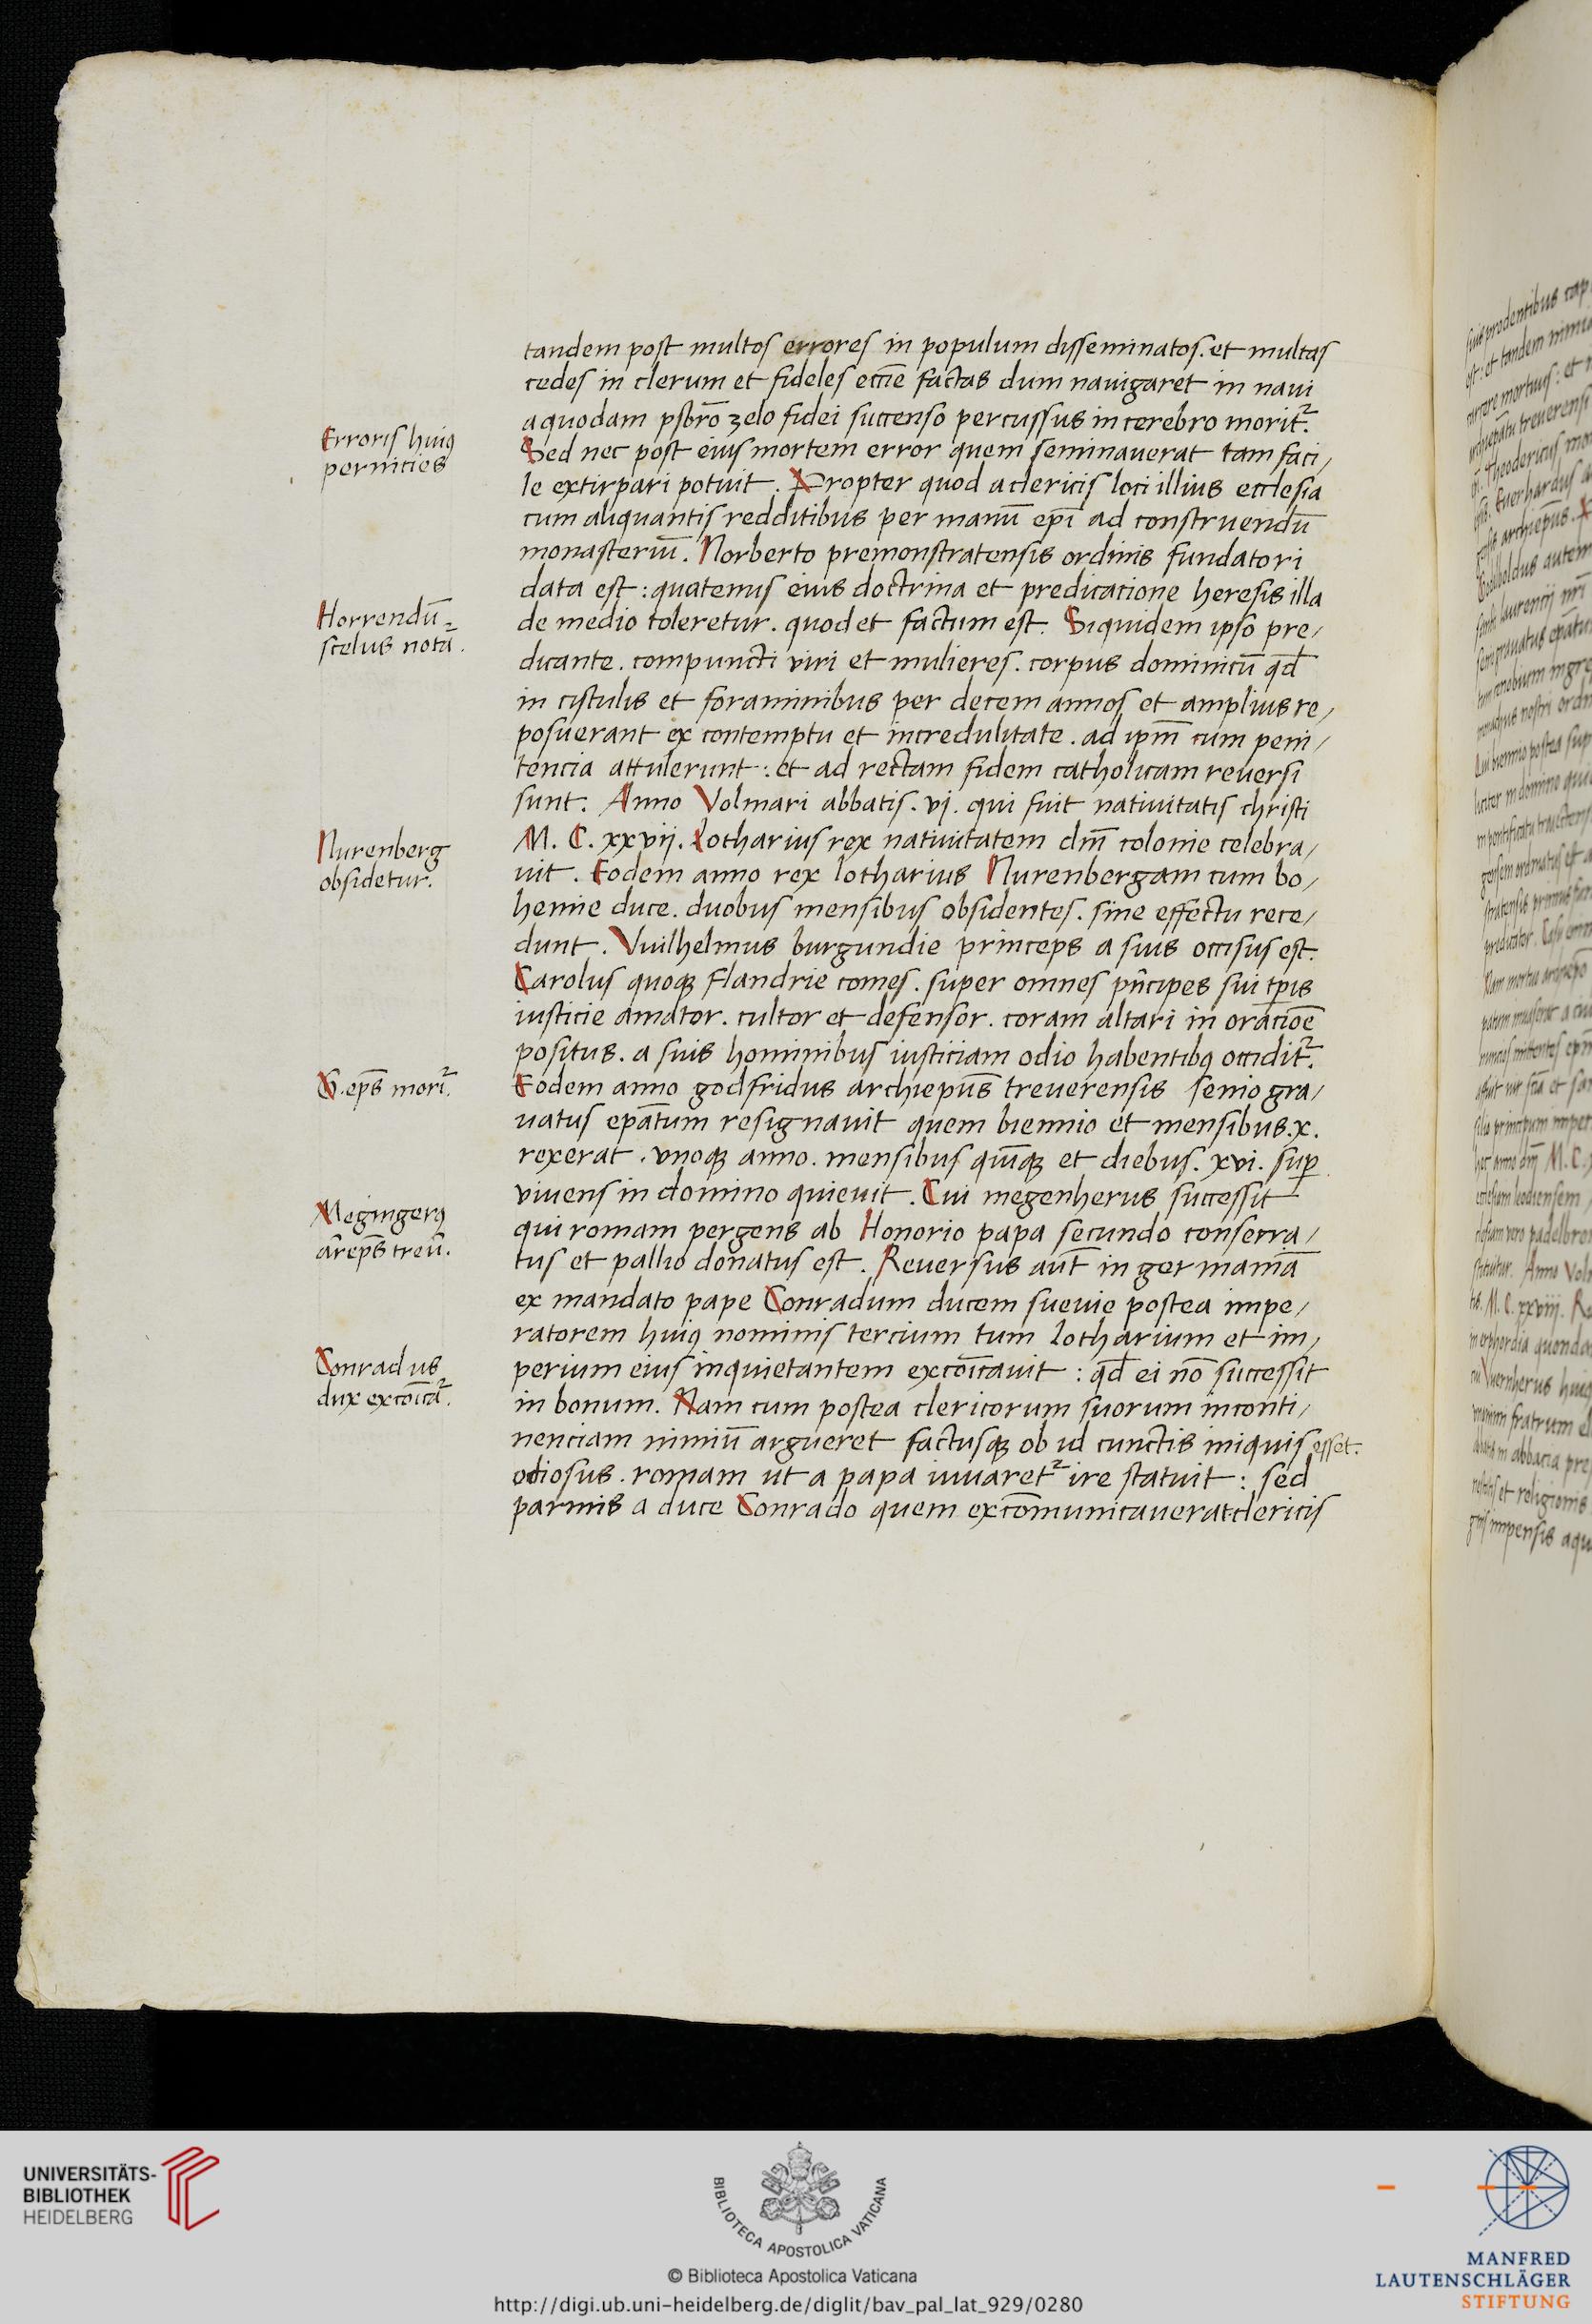 tandem post multos errores in populum disseminatos. et multas
cedes in clerum et fideles eccīe factas dum nauigaret in naui
a quodam psbrō zelo fidei succenso percussus in cerebro morit᷑.
Erroris huiꝰ
pernicies
Sed nec post eius mortem error quem seminauerat tam faci/
le extirpari potuit. Propter quod a clericis loci illius ecclesia
cum aliquantis redditibus per manū epī ad construendū
monasteriū. Norberto premonstratensis ordinis fundatori
data est: quatenus eius doctrina et predicacione heresis illa
Horrendū
scelus nota᷑.
de medio tolleretur. quod et factum est. Siquidem ipso pre/
dicante. compuncti viri et mulieres. corpus dominicū qd̄
in cistulis et foraminibus per decem annos et amplius re/
posuerant ex contemptu et incredulitate. ad ipm̄ cum peni/
tencia attulerunt: et ad rectam fidem catholicam reuersi
sunt. Anno Volmari abbatis. vj. qui fuit natiuitatis christi
Nurenberg
obsidetur.
M. C. xxvij. Lotharius rex natiuitatem dm̄ colonie celebra/
uit. Eodem anno rex lotharius Nurenbergam cum bo/
hemie duce. duobus mensibus obsidentes. sine effectu rece/
dunt. Vuilhelmus burgundie princeps a suis occisus est.
Carolus quoqꝫ flandrie comes. super omnes pn̄cipes sui tp̄is
iusticie amator. cultor et defensor. coram altari in oracioē
positus. a suis hominibus iusticiam odio habentibꝰ occidit᷑.
G. ep̄s mori᷑.
Eodem anno godfridus archiepūs treuerensis senio gra/
uatus epātum resignauit quem biennio et mensibus. x.
rexerat. vnoqꝫ anno. mensibus quīqꝫ et diebus. xvi. suꝑ
viuens in domino quieuit. Cui megenherus successit
Megingerꝰ
ar̄ep̄s treū.
qui romam pergens ab Honorio papa secundo consecra/
tus et pallio donatus est. Reuersus aūt in germaniā
ex mandato pape Conradum ducem sueuie postea impe/
ratorem huiꝰ nominis tercium tum lotharium et im/
Conradus
dux excoīca᷑.
perium eius inquietantem excoīcauit: qd̄ ei nō successit
in bonum. Nam cum postea clericorum suorum inconti/
nenciam nimiū argueret factusqꝫ ob id cunctis iniquis esset.
odiosus. romam ut a papa iuuaret᷑ ire statuit: sed
parmis a duce Conrado quem excōmunicauerat. clericis
UNIVERSITÄTS-
BIBLIOTHEK
HEIDELBERG
BIBLIOTECA APOSTOLICA VATICANA
© Biblioteca Apostolica Vaticana
http://digi.ub.uni-heidelberg.de/diglit/bav_pal_lat_929/0280
MANFRED
LAUTENSCHLÄGER
STIFTUNG